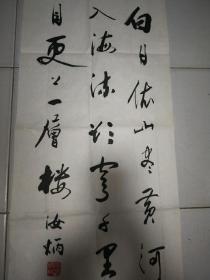 白日依山尽黄河
入海流欲穷千里
目更上一層楼
汝炳